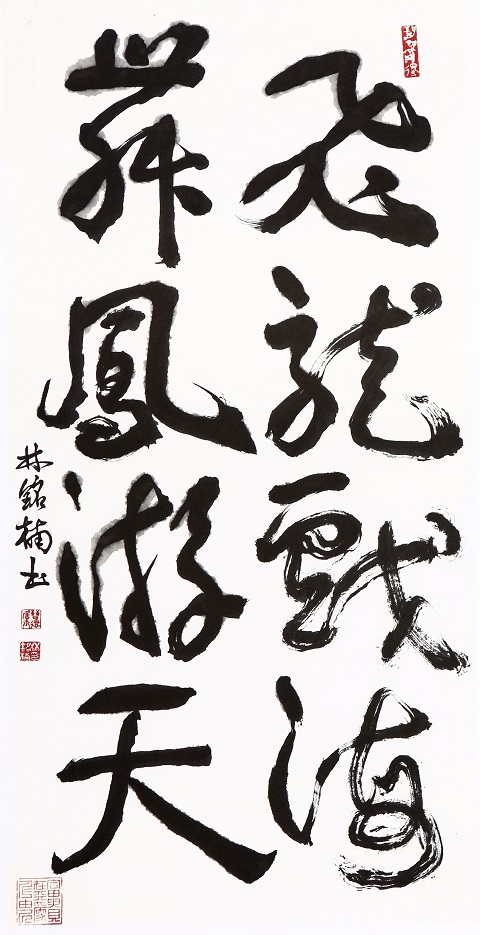 飛龍戲海
舞鳳游天
林銘楠书